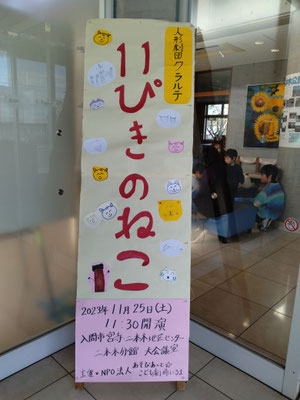 人形劇団クラルテ
11ぴきのねこ
2023年11月25日(土)
11:30開演
入間市宮寺・二本木地区センター
二本木分館 大会議室
主催・NPO法人